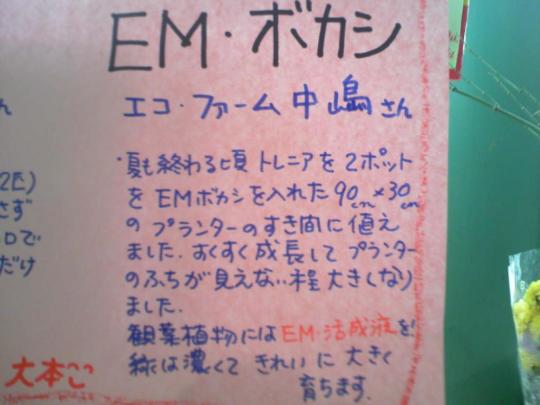 EM・ボカシ
エコ・ファーム 中嶋さん
・夏も終わる頃 トレニアを 2ポット
を EMボカシを入れた 90cm×30cm
の プランターのすき間に値え
ました. すくすく成長して プランター
のふちが見えない程 大きくなり
ました.
観葉植物には EM・活成液を!
緑は濃くて きれいに 大きく
育ちます.
ん
2E)
さず
口で
だけ
大本ここ